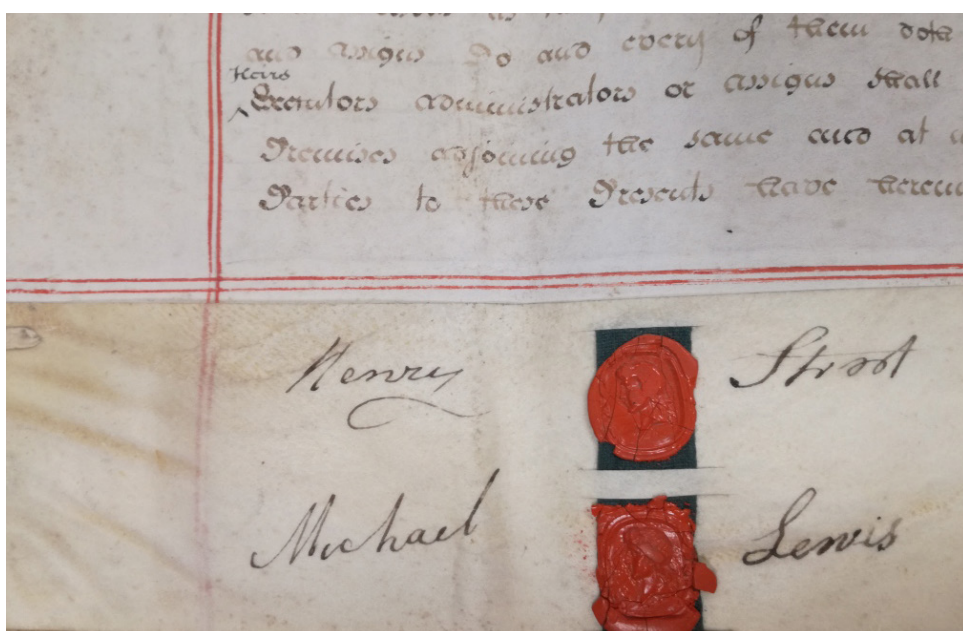 and assigns Do and every of them doth
Heirs
Executors administrators or assigns shall
Premises adjoining the same and at
Parties to these Presents have hereun
Henry Street
Michael Lewis